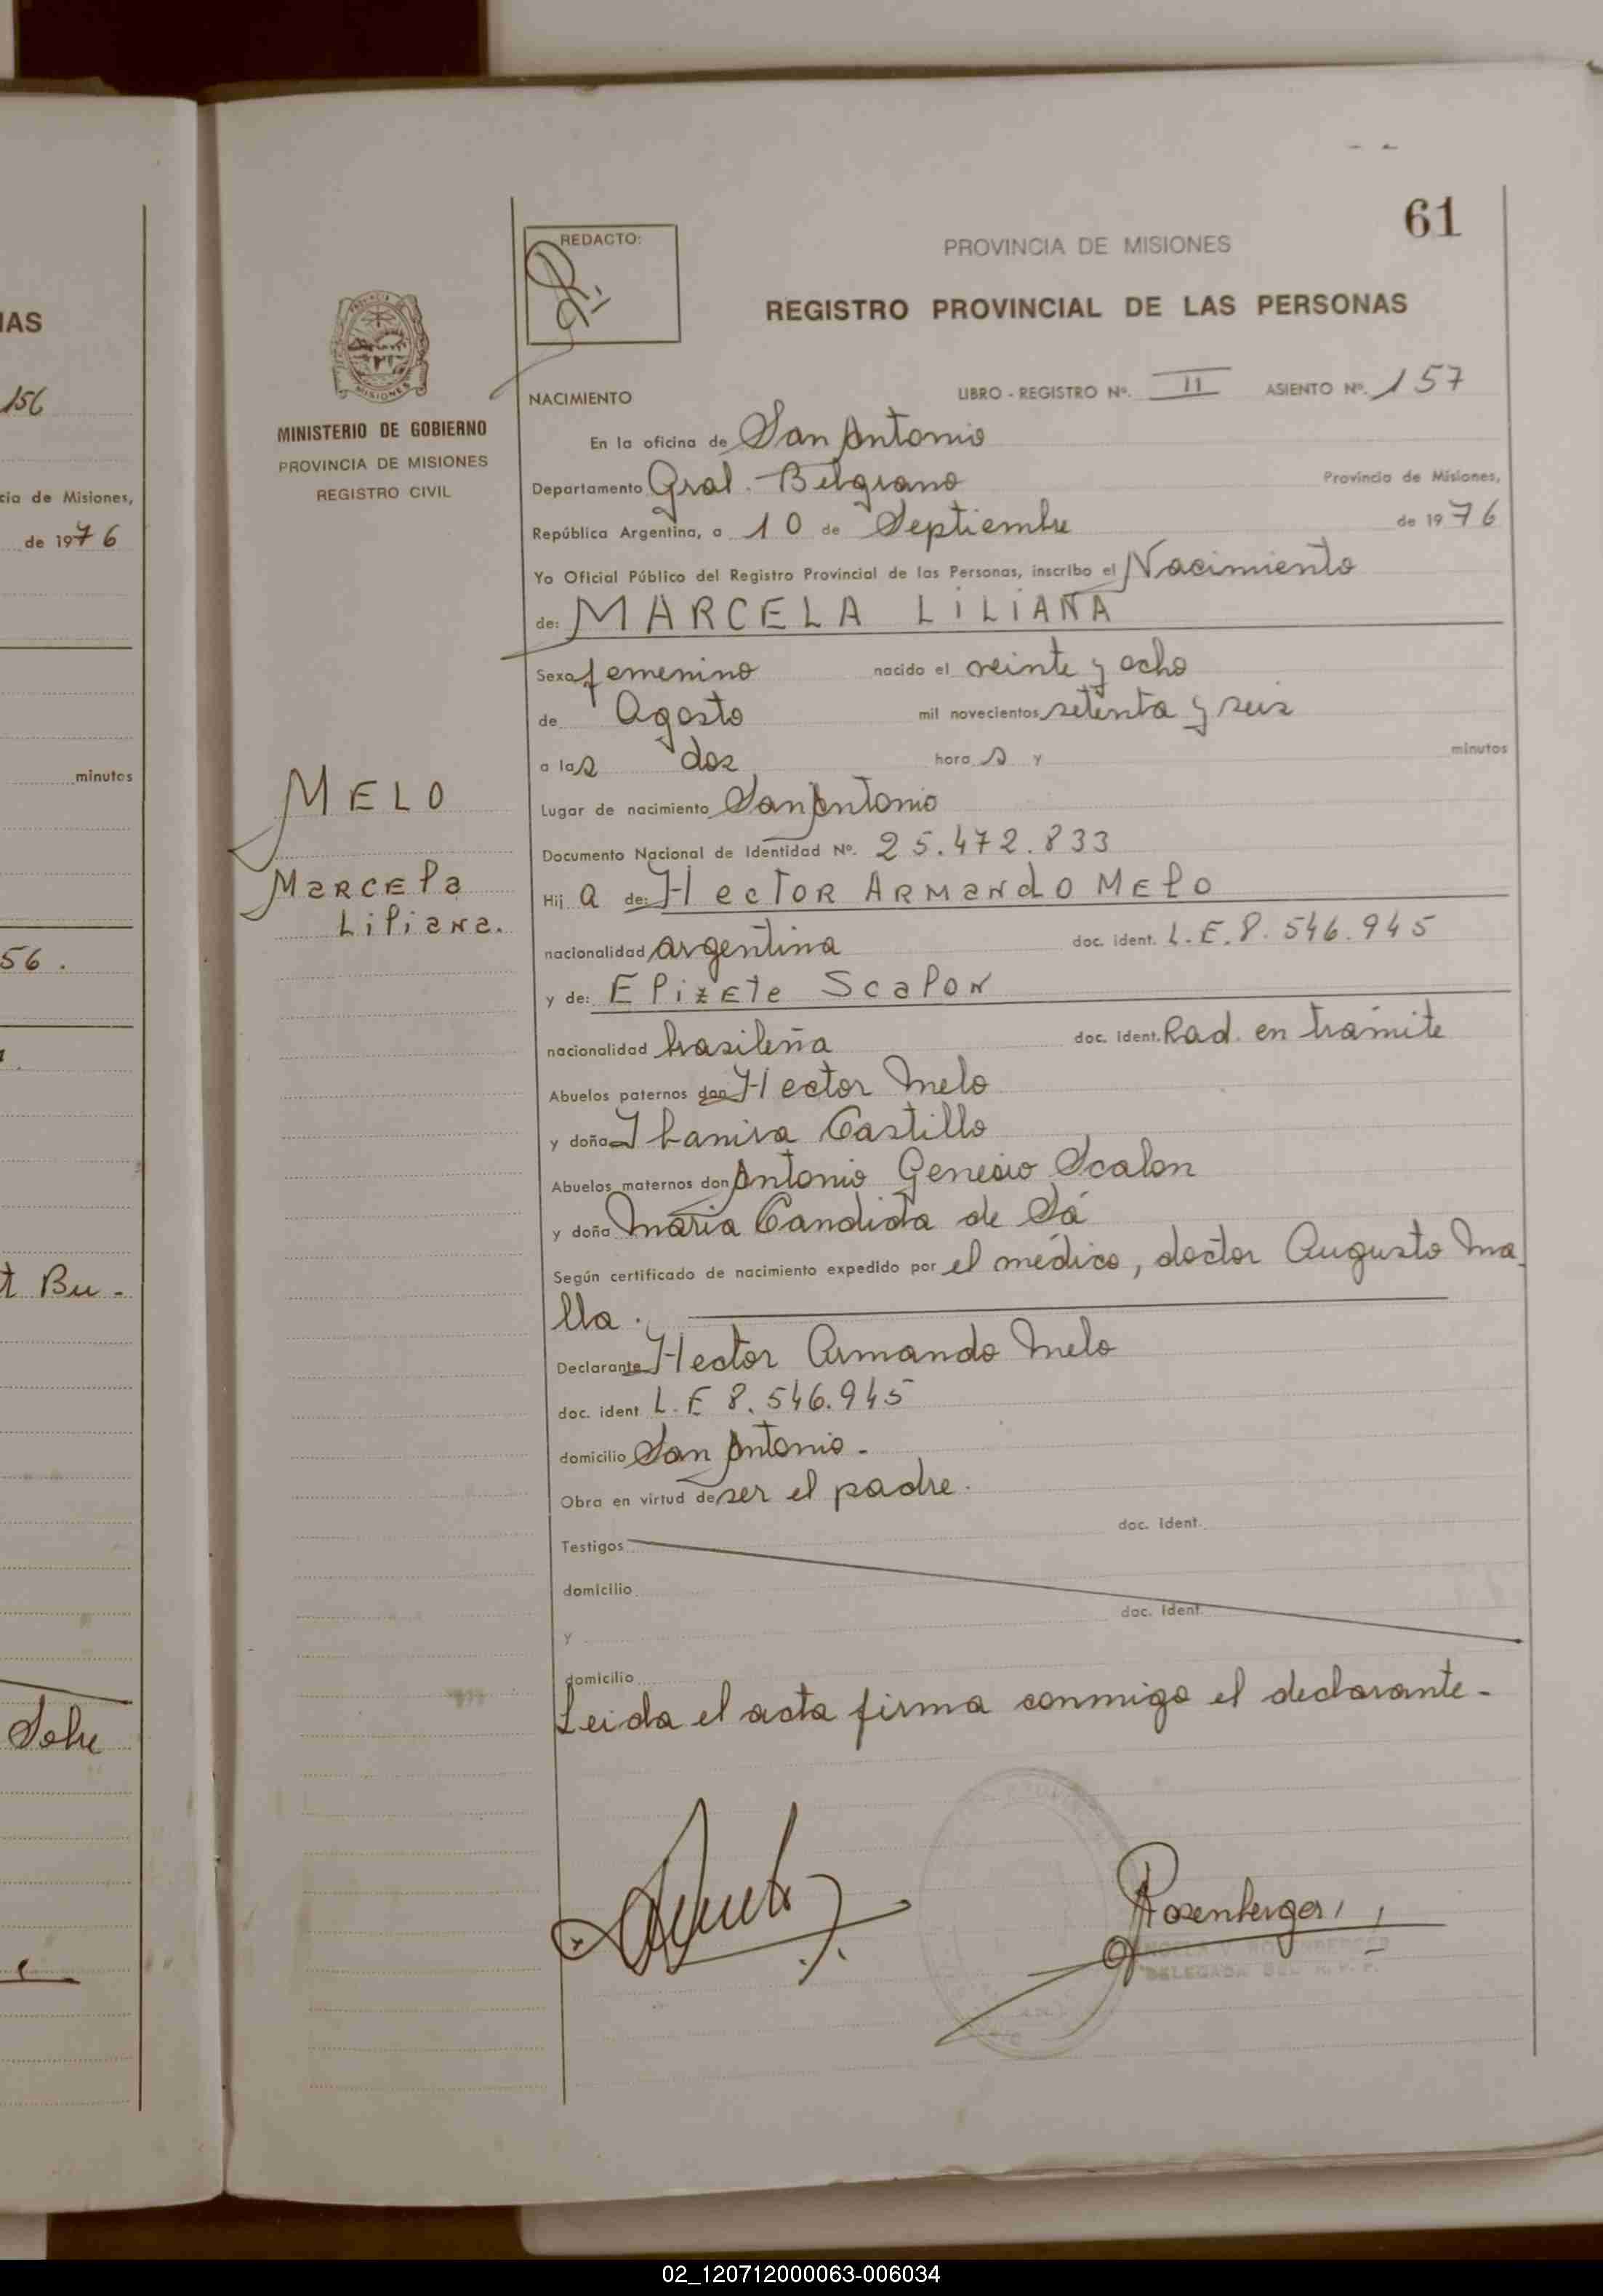 IAS
156
cia de Misiones,
de 1976
minutos
56.
t Bu-
61
REDACTO:
PROVINCIA DE MISIONES
REGISTRO PROVINCIAL DE LAS PERSONAS
MINISTERIO DE GOBIERNO
PROVINCIA DE MISIONES
REGISTRO CIVIL
MELO
MARCELa
LiLiana.
NACIMIENTO LIBRO - REGISTRO Nº. II ASIENTO Nº. 157
En la oficina de San Antonio
Departamento Gral. Belgrano Provincia de Misiones,
República Argentina, a 10 de Septiembre de 1976
Yo Oficial Público del Registro Provincial de las Personas, inscribo el Nacimiento
de: MARCELA LILIANA
Sexo femenino nacido el veinte y ocho
de Agosto mil novecientos setenta y seis
a las dos horas y minutos
Lugar de nacimiento San Antonio
Documento Nacional de Identidad Nº. 25.472.833
Hija de: Hector Armando Melo
nacionalidad argentina doc. ident. L.E. 8.546.945
y de: Elizete Scalon
nacionalidad brasileña doc. ident. Rad. en tramite
Abuelos paternos don Hector Melo
y doña Castillo
Abuelos maternos don Antonio Genesio Scalon
y doña Maria Candida de Sá
Según certificado de nacimiento expedido por el médico, doctor Augusto Ma-
lla.
Declarante Hector Armando Melo
doc. ident L.E 8.546.945
domicilio San Antonio-
Obra en virtud de ser el padre.
doc. ident.
Testigos
domicilio
doc. ident.
y
domicilio
Leida el acta firma conmigo el declarante-
Rosenberger
DELEGADA DEL R.P.P.
02_120712000063-006034